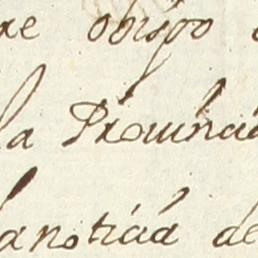 re obispo
la Provincia
la noticia de